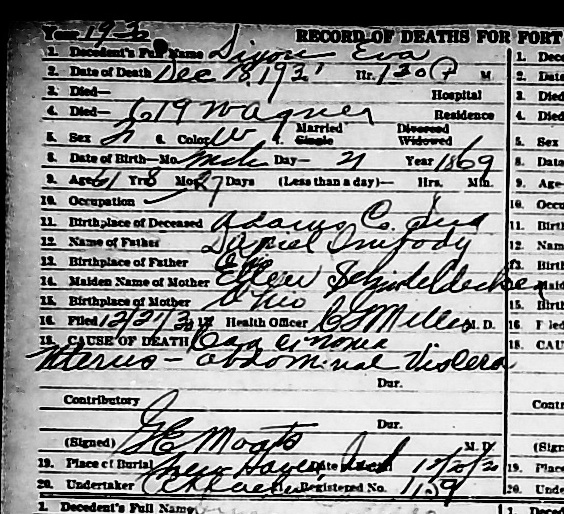 Year 1930 RECORD OF DEATHS FOR FORT
1. Decedent's Full Name Dixon Eva
2. Date of Death Dec 18, 193 Hr. 130 P M
3. Died— Hospital
4. Died— 619 Wagner Residence
5. Sex 6. Color W 7. Married Single Divorced Widowed
8. Date of Birth—Mo. Mch Day— 21 Year 1869
9. Age 61 Yrs 8 Mos 27 Days (Less than a day)— Hrs. Min.
10. Occupation
11. Birthplace of Deceased Adams Co. Ind
12. Name of Father Daniel Imbody
13. Birthplace of Father Ohio
14. Maiden Name of Mother Ellen
15. Birthplace of Mother Ohio
16. Filed 12/21/30 17 Health Officer Miller M. D.
18. CAUSE OF DEATH Carcinoma
Uterus - abdominal Viscera
Dur.
Contributory
Dur.
(Signed) Moats M. D.
19. Place of Burial New Haven Ind Date 12/20/30
20. Undertaker Registered No. 1159
1. Decedent's Full Name
1. Dece
2. Date
3. Died
4. Died
5. Sex
8. Date
9. Age-
10. Occu
11. Birth
12. Nam
13. Birth
Maid
15. Birth
16. Filed
18. CAU
Contri
(Sign
19. Place
20. Unde
1. Dece